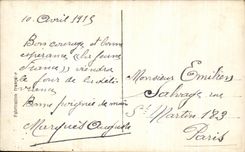 10 Avril 1915
Bon courage et bonne
espérance, la jeune
France viendra
le jour de la déli
vrance
Bonne poignée de main
Marquès Auguste
Monsieur Emilien
Salvage, rue
St Martin 123
Paris